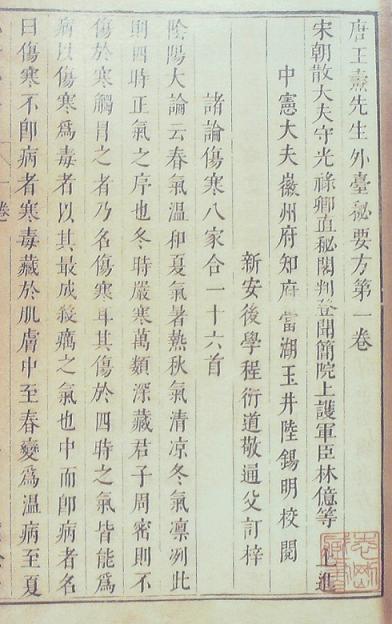 唐王燾先生外臺秘要方第一卷
宋朝散大夫守光祿卿直秘閣判登聞簡院上護軍臣林億等 上進
中憲大夫徽州府知府當湖玉井陸錫明校閱
新安後學程衍道敬通父訂梓
諸論傷寒八家合一十六首
陰陽大論云春氣溫和夏氣暑熱秋氣清凉冬氣凛冽此
則四時正氣之序也冬時嚴寒萬類深藏君子周密則不
傷於寒觸冒之者乃名傷寒耳其傷於四時之氣皆能爲
病以傷寒爲毒者以其最成殺癘之氣也中而即病者名
曰傷寒不即病者寒毒藏於肌膚中至春變爲温病至夏
卷